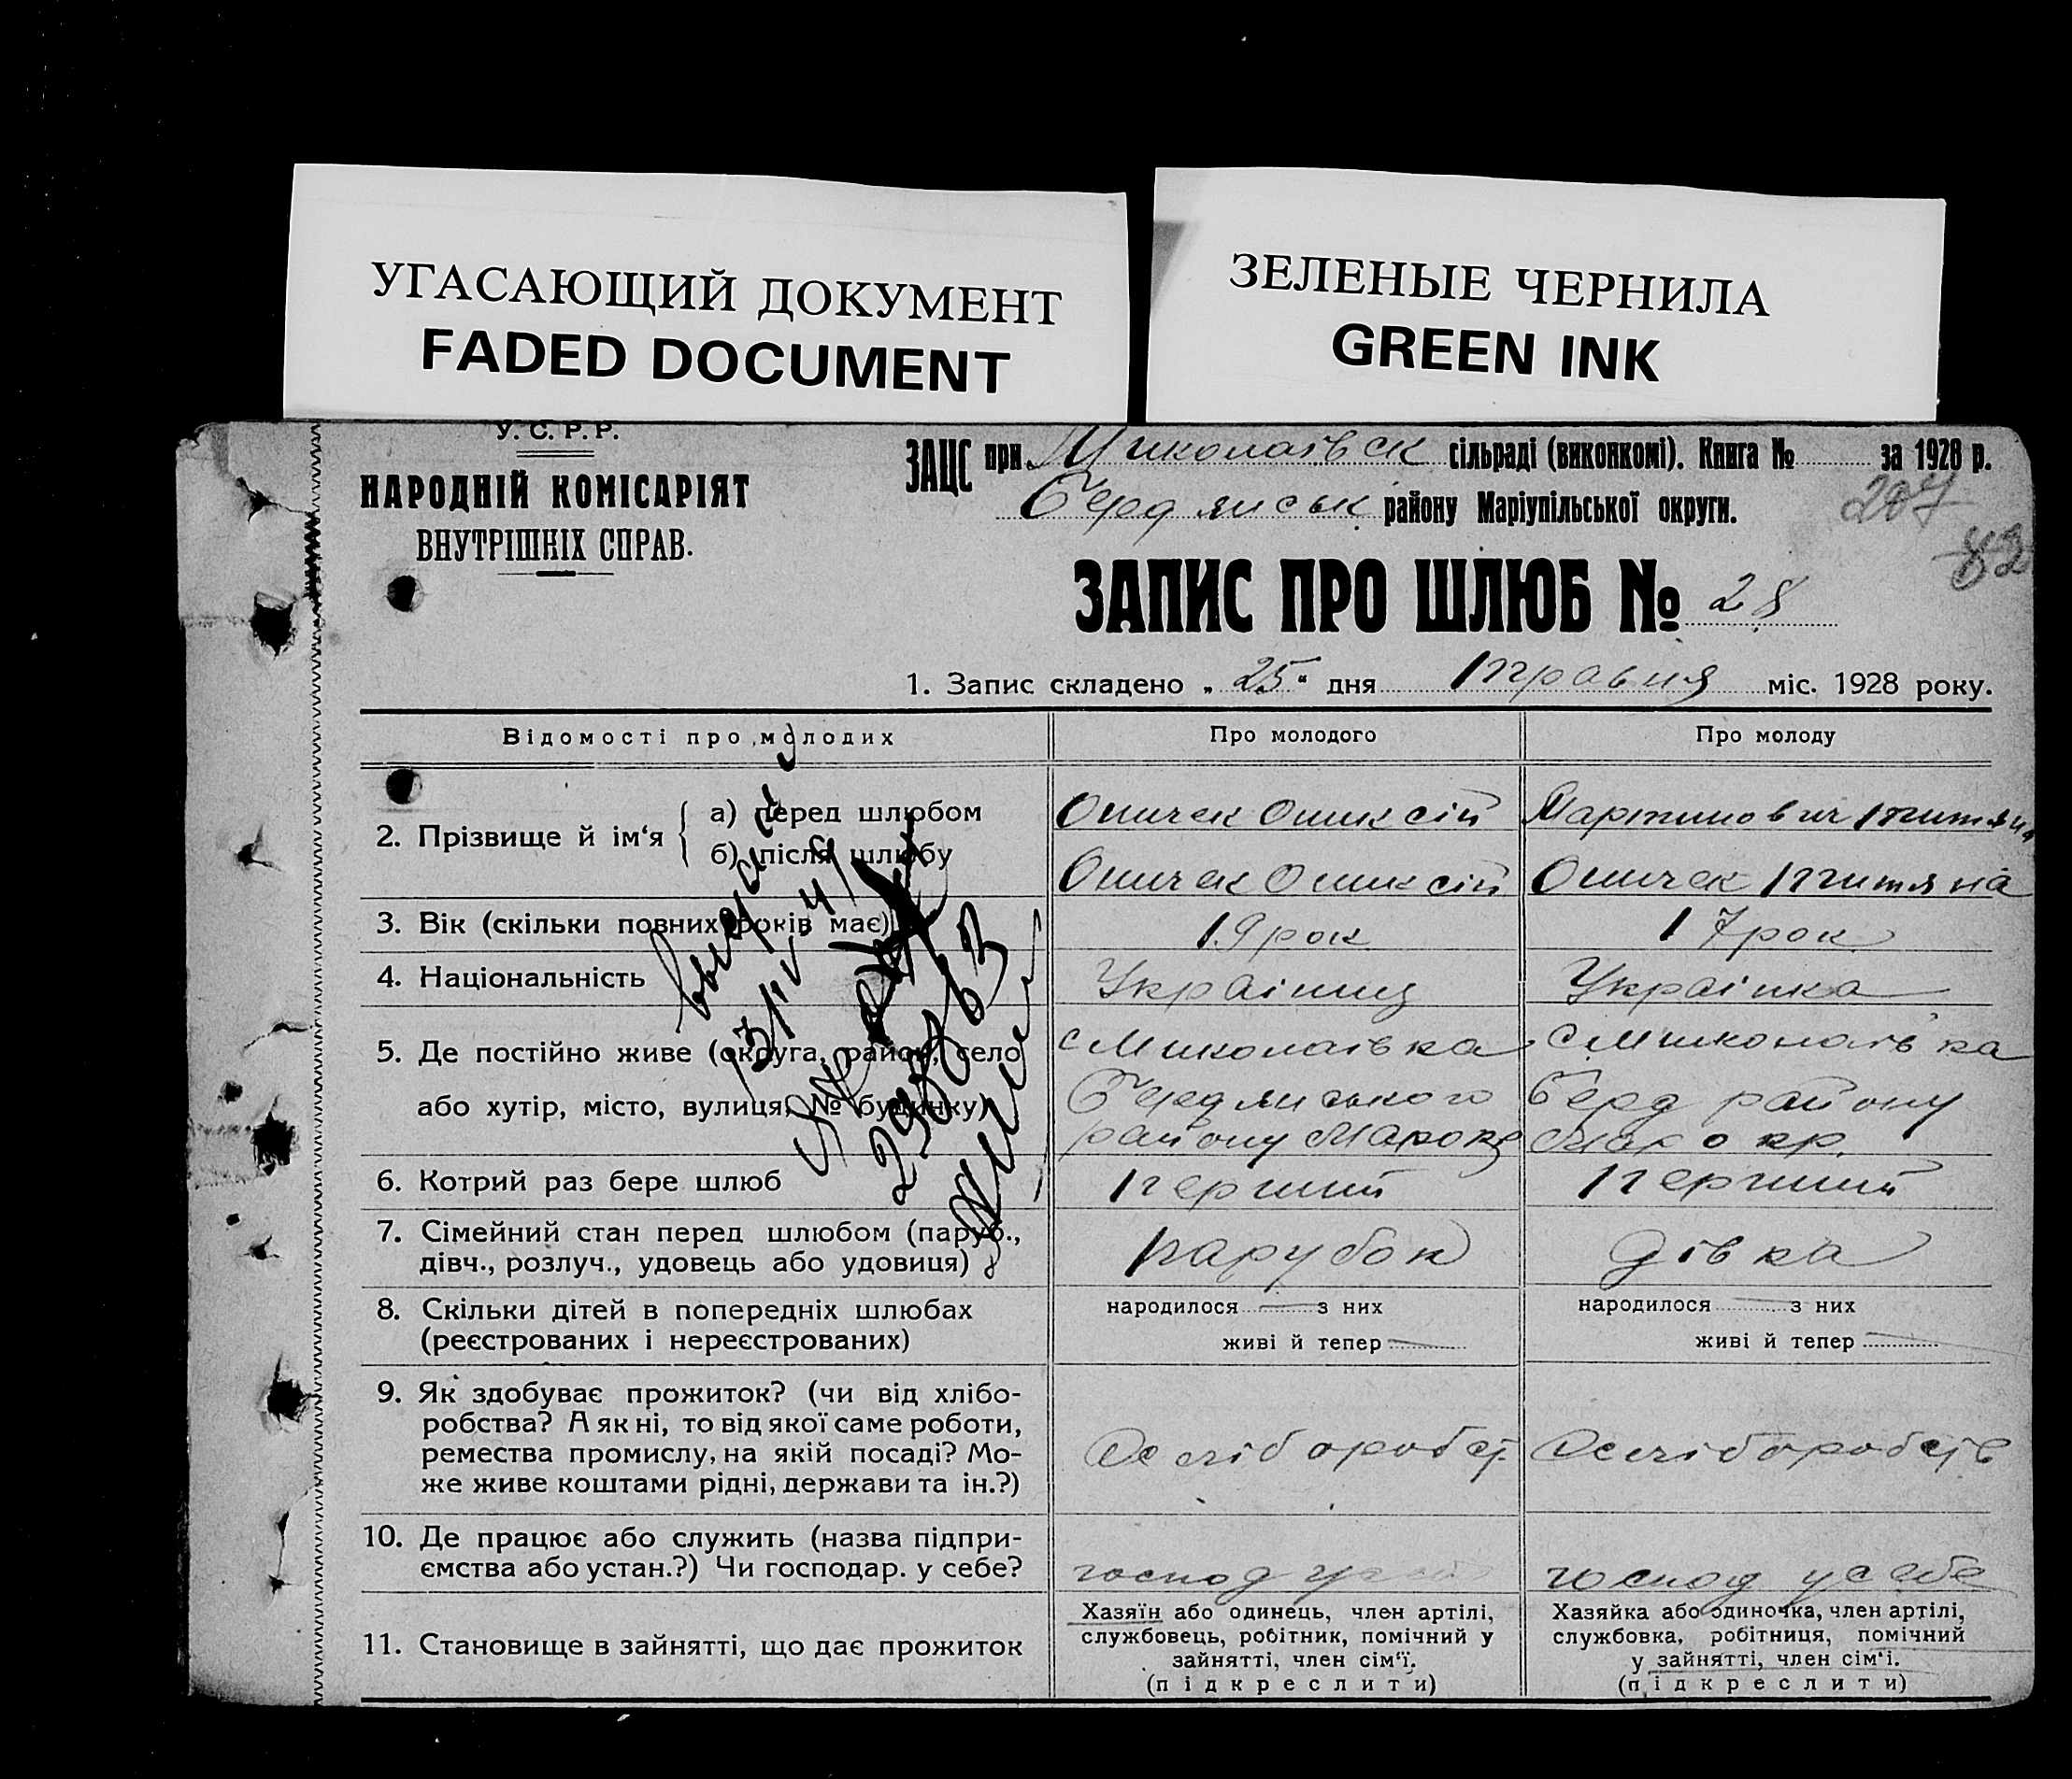 УГАСАЮЩИЙ ДОКУМЕНТ
FADED DOCUMENT
ЗЕЛЕНЫЕ ЧЕРНИЛА
GREEN INK
У. С. Р. Р.
НАРОДНІЙ КОМІСАРІЯТ
ВНУТРІШНІХ СПРАВ.
ЗАЦС при Миколаївск сільраді (виконкомі). Книга № за 1928 р.
Бердянськ району Маріупільської округи.
207
82
ЗАПИС ПРО ШЛЮБ № 28
1. Запис складено „ 25 “ дня травня міс. 1928 року.
Відомості про молодих
Про молодого
Про молоду
2. Прізвище й ім‘я
а) перед шлюбом
Олексій
Мартинович Титяна
б) після шлюбу
Олексій
Титяна
3. Вік (скільки повних років має)
19 рок
17 рок
4. Національність
Українец
Українка
5. Де постійно живе (округа, район, село
або хутір, місто, вулиця, № будинку)
с Миколаївка
Бердянського
району
с Миколаївка
Берд району
Мар окр.
6. Котрий раз бере шлюб
перший
перший
7. Сімейний стан перед шлюбом (паруб.,
дівч., розлуч., удовець або удовиця)
парубок
дівка
8. Скільки дітей в попередніх шлюбах
(реєстрованих і нереєстрованих)
народилося з них
живі й тепер
народилося з них
живі й тепер
9. Як здобуває прожиток? (чи від хлібо-
робства? А як ні, то від якої саме роботи,
ремества промислу, на якій посаді? Мо-
же живе коштами рідні, держави та ін.?)
10. Де працює або служить (назва підпри-
ємства або устан.?) Чи господар. у себе?
господ
господ у себе
11. Становище в зайнятті, що дає прожиток
Хазяїн або одинець, член артілі,
службовець, робітник, помічний у
зайнятті, член сім‘ї.
(підкреслити)
Хазяйка або одиночка, член артілі,
службовка, робітниця, помічний
у зайнятті, член сім‘і.
(підкреслити)